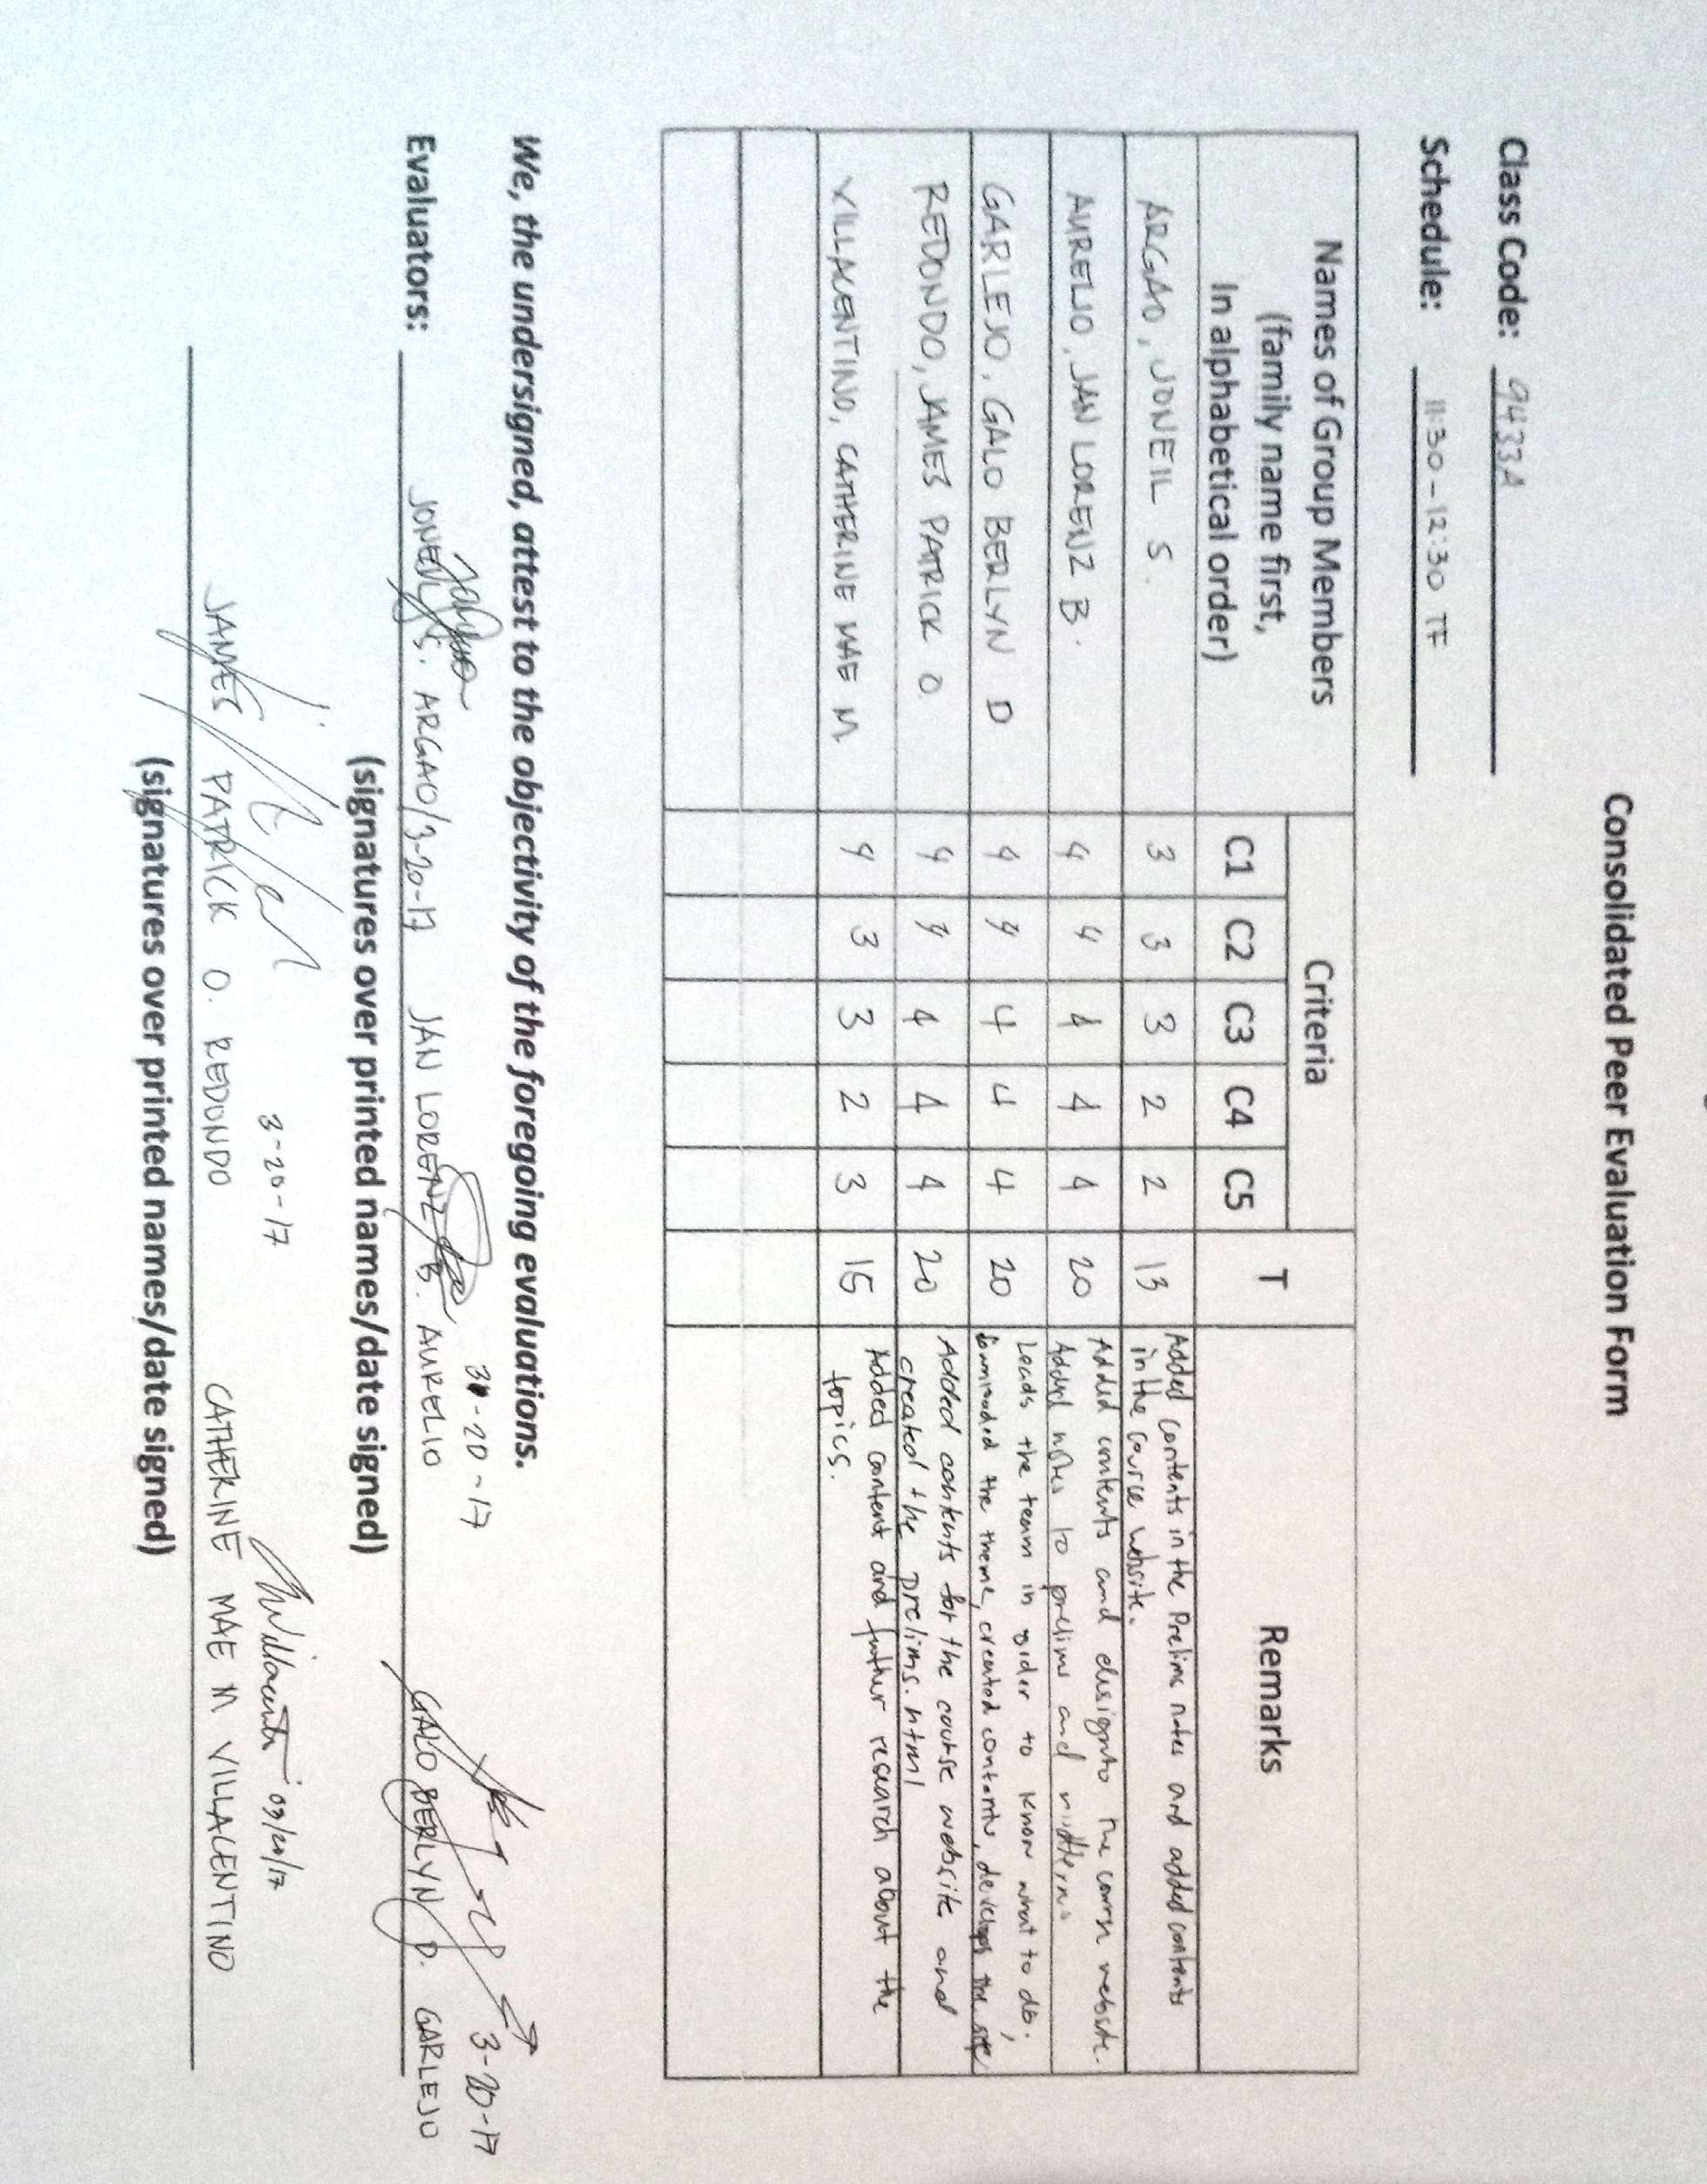 Consolidated Peer Evaluation Form
Class Code: 9433A
Schedule: 11:30-12:30 TF
Names of Group Members
(family name first,
In alphabetical order)
Criteria
T
Remarks
C1 C2 C3 C4 C5
ARGAO, JONEIL S. 3 3 3 2 2 13 Added contents in the Prelims notes and added contents
in the course website.
AURELIO, JAN LORENZ B. 4 4 4 4 4 20 Added contents and design to the course website.
Added notes to prelims and midterms
GARLEJO, GALO BERLYN D 4 4 4 4 4 20 Leads the team in order to know what to do.
Downloaded the theme, created contents, develops the site
REDONDO, JAMES PATRICK O. 4 4 4 4 4 20 Added contents for the course website and
created the prelims.html
VILLACENTINO, CATHERINE MAE M. 4 3 3 2 3 15 Added content and further research about the
topics.
We, the undersigned, attest to the objectivity of the foregoing evaluations.
3-20-17 3-20-17
Evaluators: JONEIL S. ARGAO/3-20-17 JAN LORENZ B. AURELIO GALO BERLYN D. GARLEJO
(signatures over printed names/date signed)
3-20-17 03/20/17
JAMES PATRICK O. REDONDO CATHERINE MAE M VILLACENTINO
(signatures over printed names/date signed)